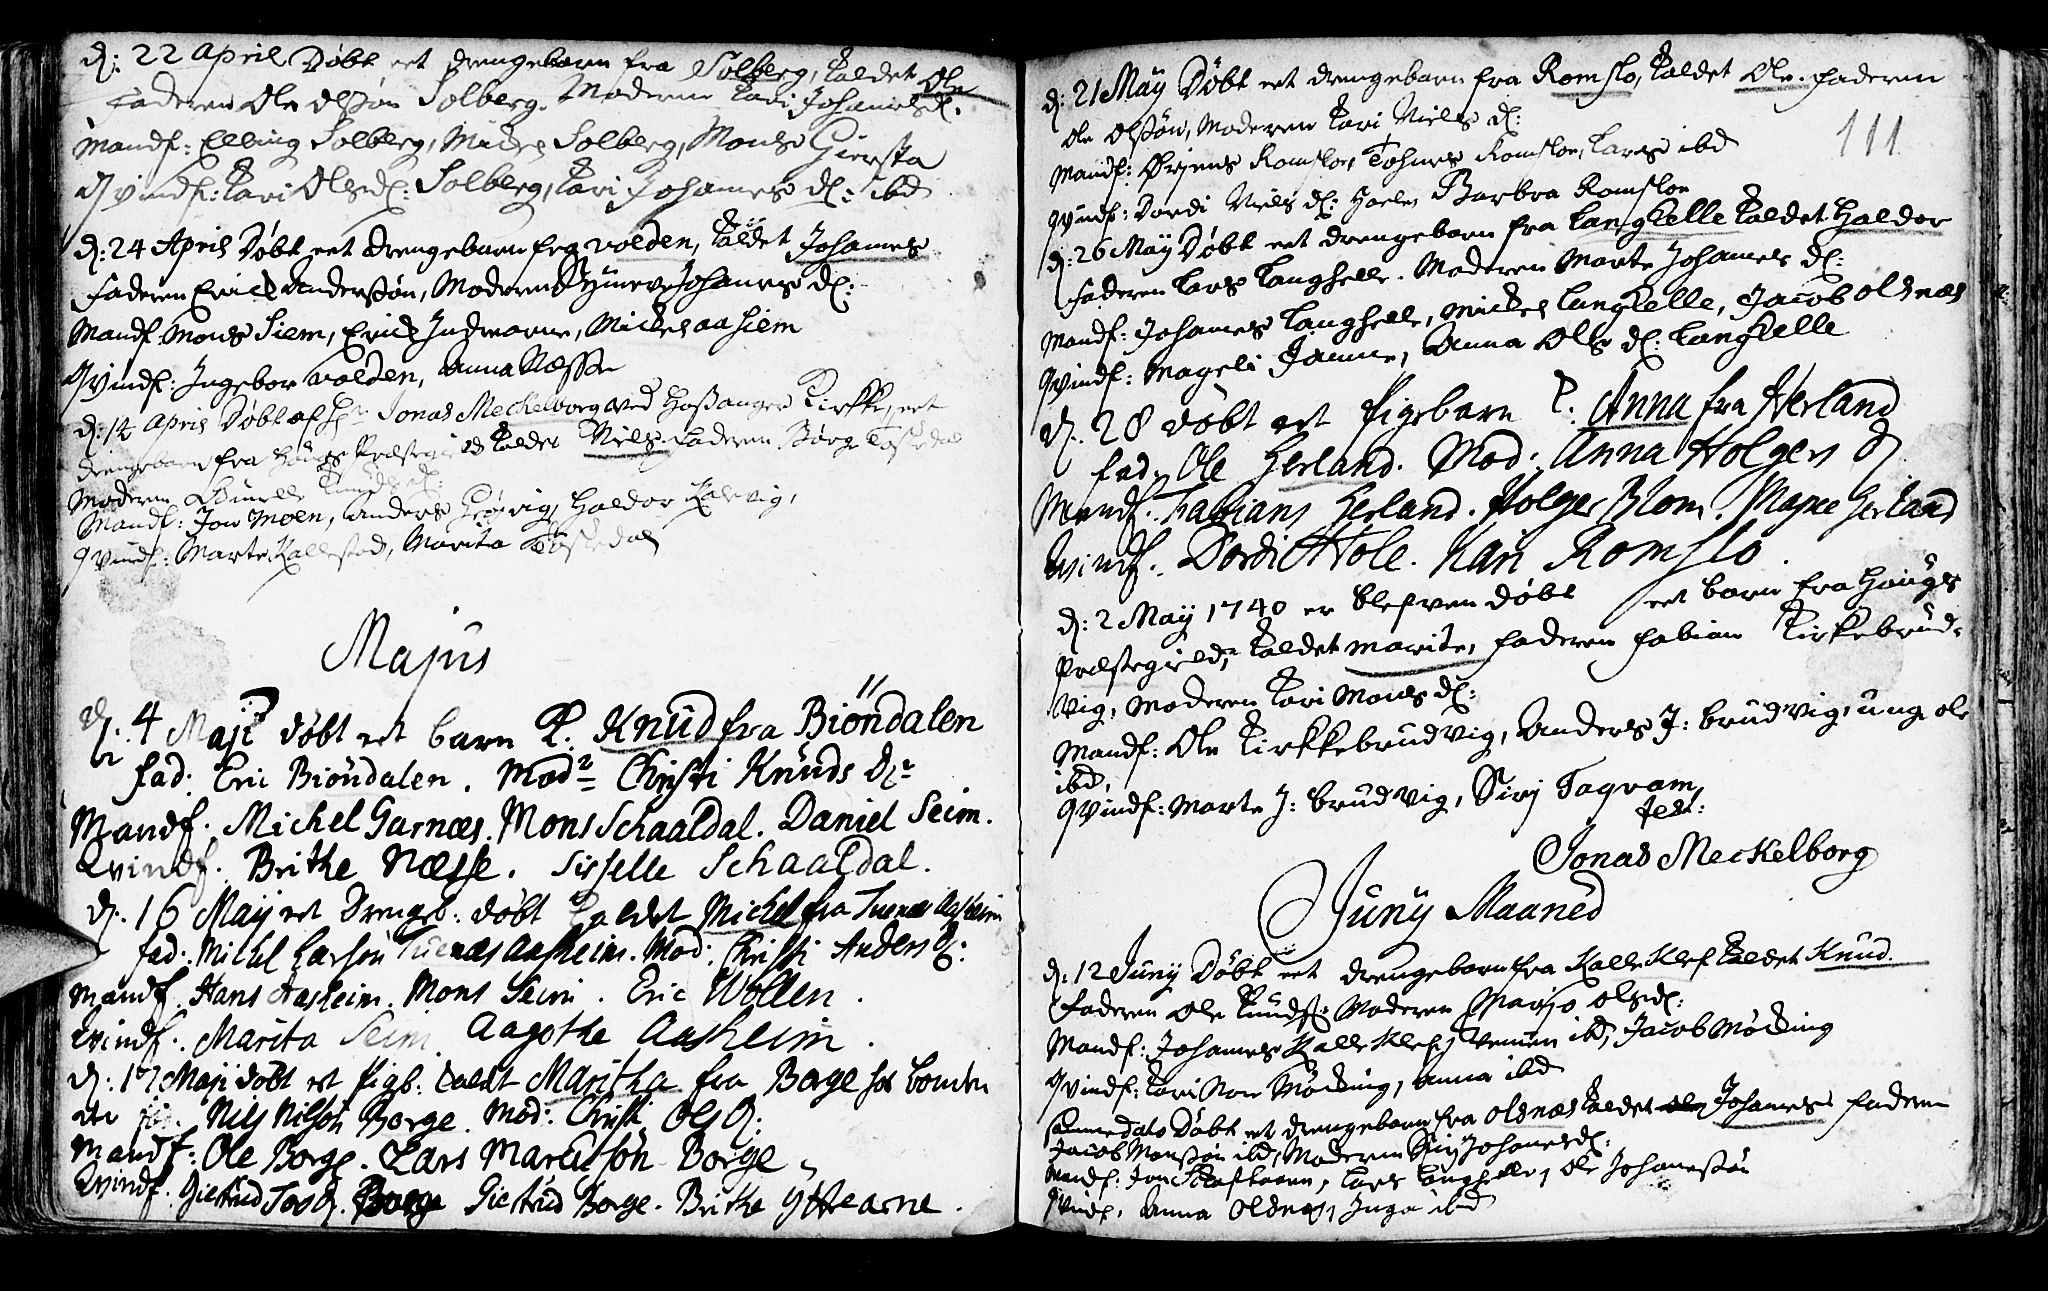 d: 22 April Døbt eet drengebarn fra Solberg, kaldet Ole
Faderen Ole Olssøn Solberg. Moderen Kari Johannesd.
Mandf: Elling Solberg, Mickel Solberg, Mons Giersta
Qvindf: Kari Olsd: Solberg, Kari Johannes d: ibd
d: 24 April Døbt eet drengebarn fra volden, kaldet Johannes
Faderen Erick Anderssøn, Moderen Synneve Johannes d:
Mandf. Mons Siem, Erick Indrearne, Mickel aasiem
Qvindf: Ingebor volden, Anna Næsse
d: 14 April Døbt af Hr Jonas Meckelborg ved Hossanger Kirkke, eet
drengebarn fra Houg Præstegield kaldet Niels. Faderen Børge
Moderen Knuds d:
Mandf: Jon Moen, Anders Haldor
Qvindf: Marte Kallestad, Marita
Majus
d. 4 Maji døbt eet barn k. Knud fra Biöndalen
fad. Eric Biöndalen. Mod: Christi Knüds D.
Mandf. Michel Garnæs. Mons Schaaldal. Daniel Seim.
Qvindf. Brithe Næsse. Sisselle Schaaldal.
d. 16 Maij eet Drengb: døbt kaldet Michel fra Tuenæs Aasheim
fad: Michel Larsön Tuenæs Aasheim. Mod. Christi Anders D:
Mandf. Hans Aasheim. Mons Seim. Eric Wollen.
Qvindf. Marita Seim Aagothe Aasheim.
d: 17 Maji døbt et Pigb. kaldt Maritha fra Borge
fad. Nils Nilsön Borge. Mod: Christi Ols D:
Mandf: Ole Borge. Lars Martisön Borge
Qvindf. Giertrüd D. Borge Giertrüd Borge. Brithe Ytre arne.
111
d: 21 Maÿ Døbt eet drengebarn fra Romslo, kaldet Ole. Faderen
Ole Olssøn, Moderen Kari Niels d:
Mandf: Ørjens Romsloe, Johnes Romsloe, Lars ibd
Qvindf: Dordi Niels d: Barbra Romsloe
d: 26 Maÿ Døbt eet drengebarn fra Langhelle kaldet Haldor
Faderen Lars Langhelle. Moderen Marte Johannes d:
Mandf: Johannes Langhelle, Mickel Langhelle, Jacob Olsnæs
Qvindf: Mageli Janne, Anna Ols d: Langhelle
d. 28 døbt eet Pigebarn k: Anna fra Herland
fad. Ole Herland. Mod: Anna Holgers D
Mandf. Fabians Herland. Holger Blom. Magne Herland
Qvindf. Dordi Hole. Kari Romslo.
d: 2 Maÿ 1740 er blefven døbt eet barn fra Hougs
Præstegield, kaldet Marite, Faderen Fabian Kirkebrud-
vig, Moderen Kari Mons d:
Mandf: Ole Kirkkebrudvig, Anders J: brudvig, unge Ole
ibd,
Qvindf: Marte J: brudvig, Siri
test:
Jonas Meckelborg
Junÿ Maaned
d. 12 Junÿ Døbt eet drengebarn fra Kalleklef kaldet Knud.
Faderen Ole Knuds: Moderen Marjo Olsd:
Mandf: Johannes Kalleklef, ibd, Jacob Møcking
Qvindf: Kari Møcking, Anna ibd
Samme dato Døbt et drengebarn fra Olsnæs kaldet Johannes Faderen
Jacob Monssøn ibd, Moderen Siri Johannesd:
Mandf: Jon Lars Langhelle, Ole Johannessøn
Qvindf, Anna Olsnæs, Inga ibd